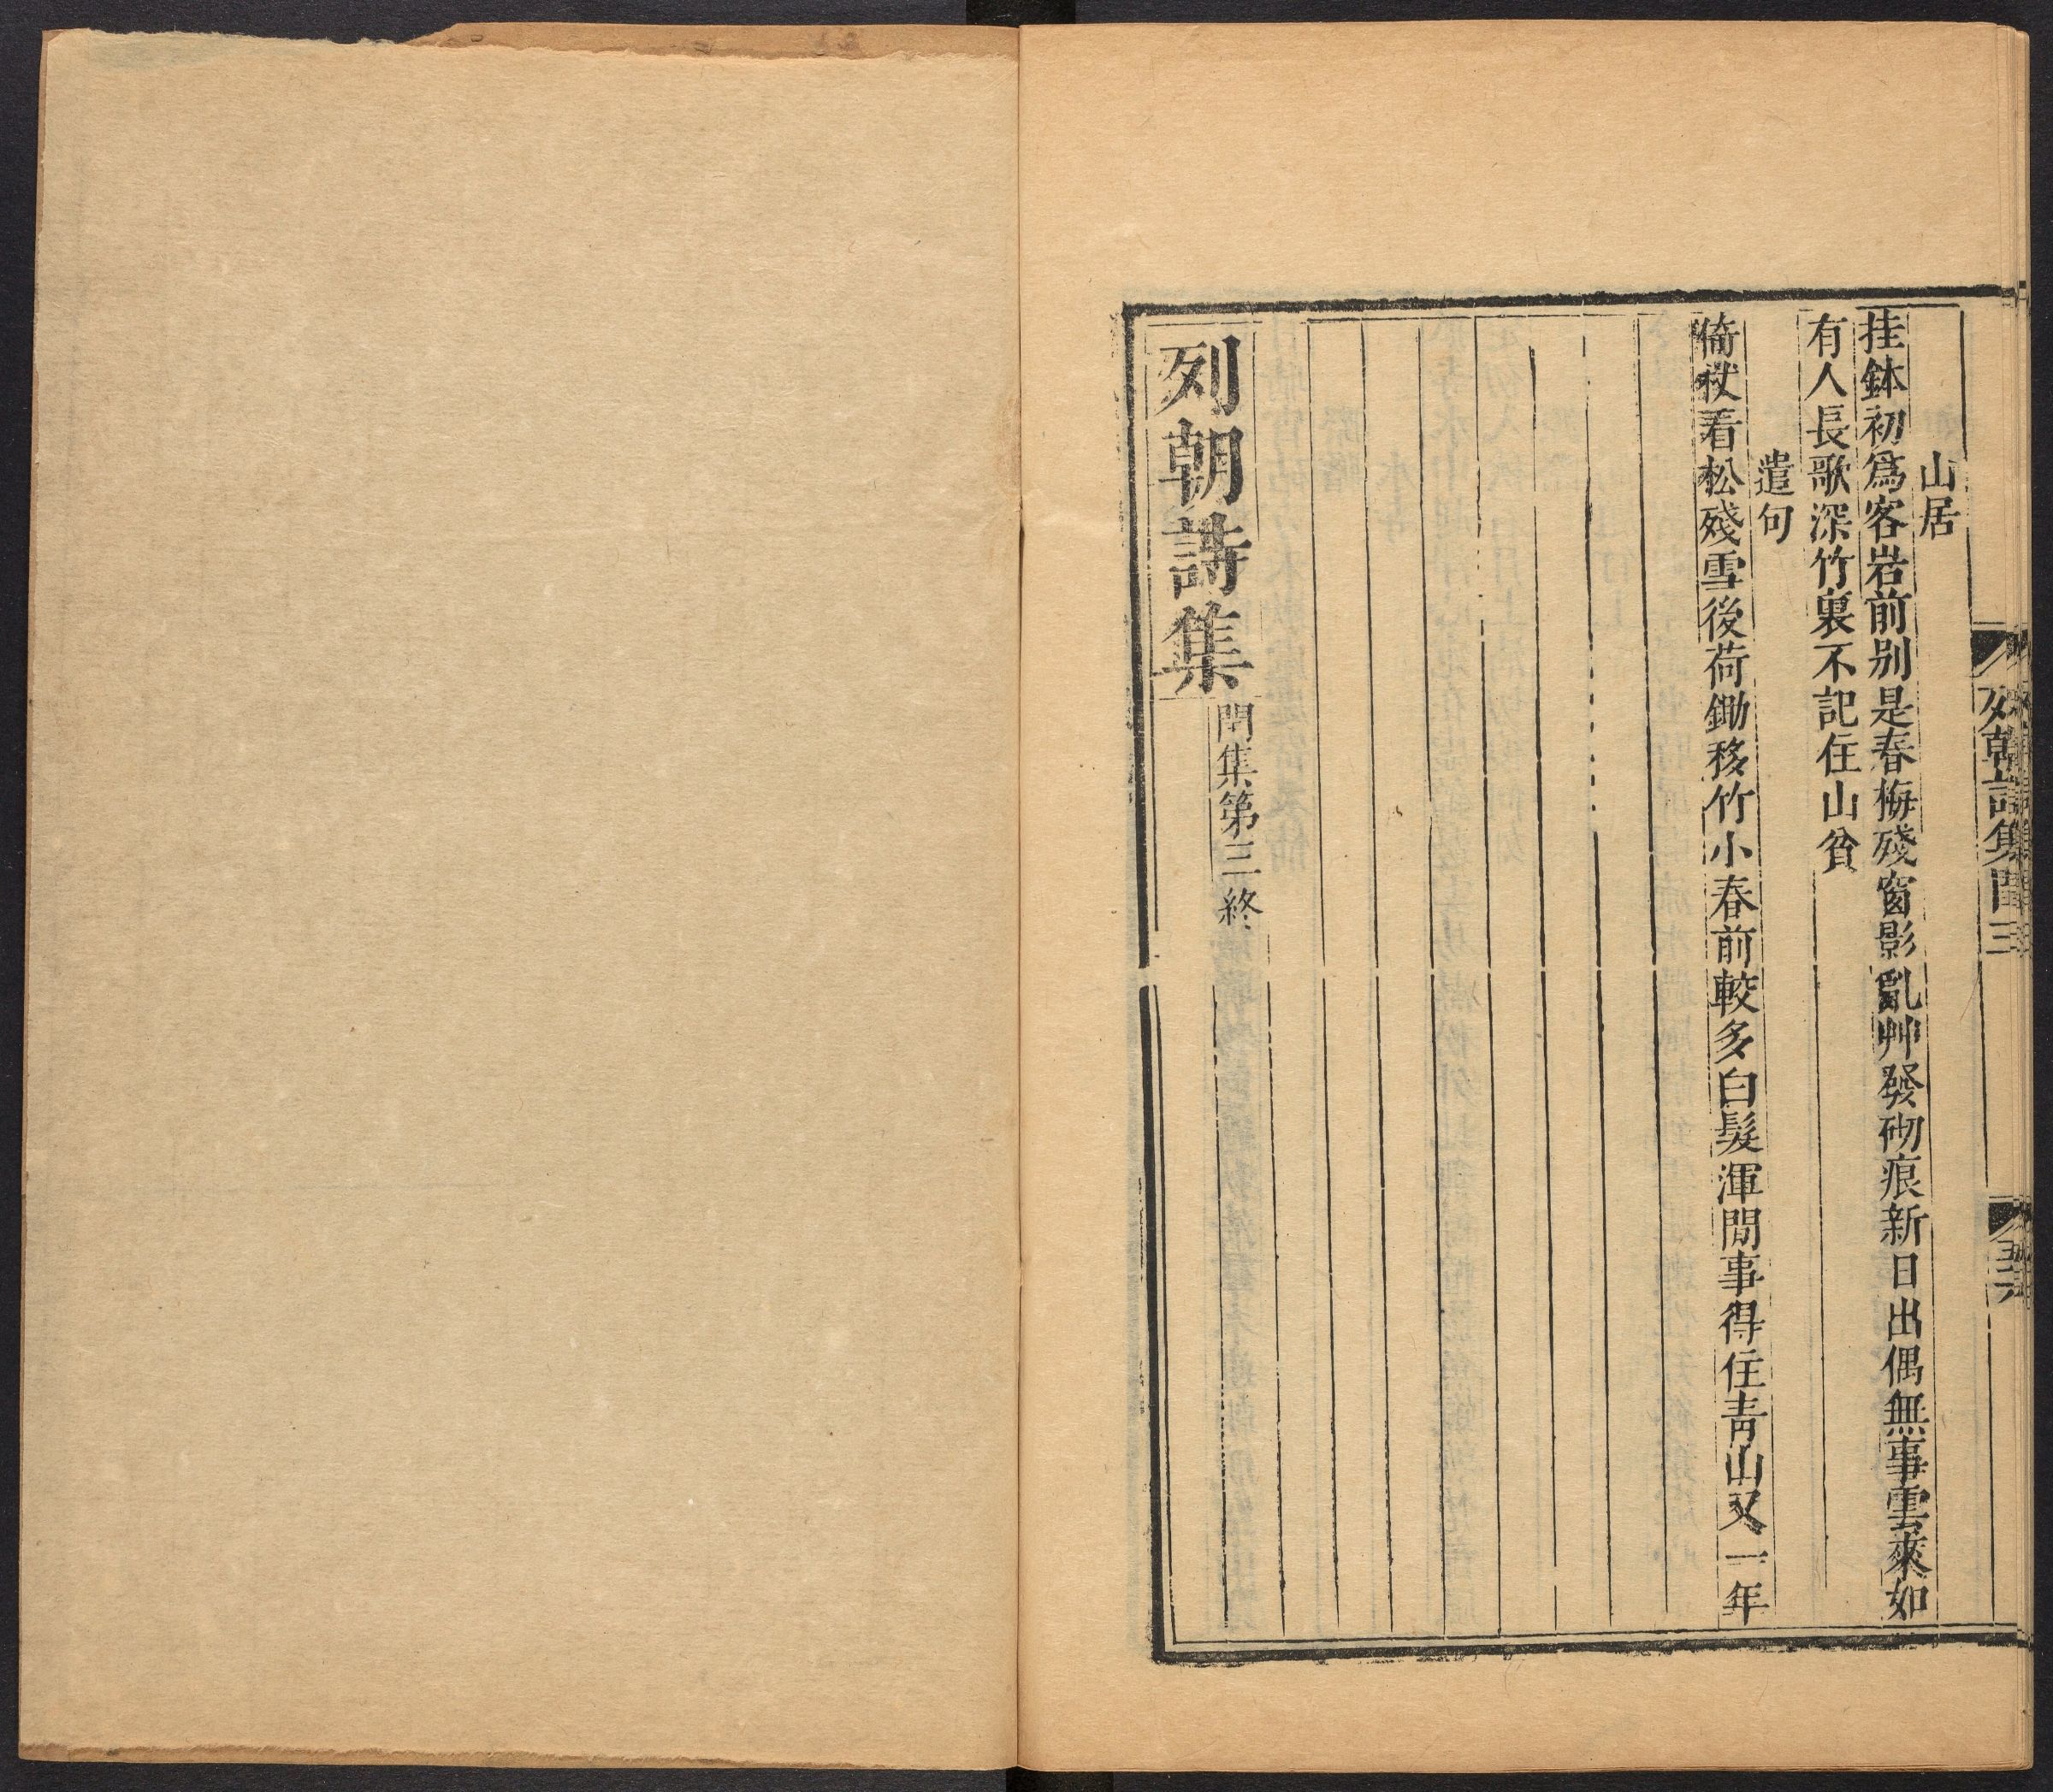 山居
挂鉢初爲客岩前别是春梅殘窗影亂艸發砌痕新日出偶無事雲來如
有人長歌深竹裏不記住山貧
遣句
倚杖看松殘雪後荷鋤移竹小春前較多白髮渾閒事得住青山又一年
列朝詩集
閏集第三終
列朝詩集閏三